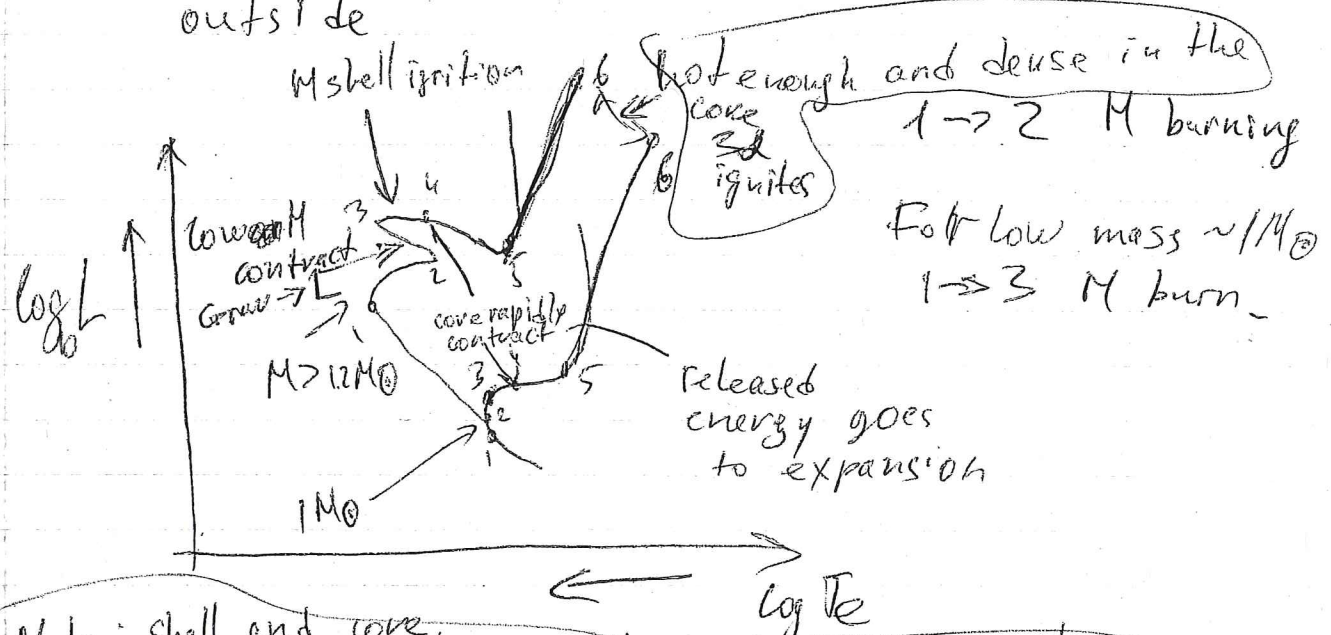 outside
H shell ignition
6
hot enough and dense in the
core
3α
ignites
6
1 -> 2 H burning
For low mass ~1M⊙
1 -> 3 H burn.
log L
low on H
contract
Grav -> L
3
4
2
5
1
M > 1.2M⊙
core rapidly
contract
3
2
1
5
released
energy goes
to expansion
1M⊙
log Te
shell and core.